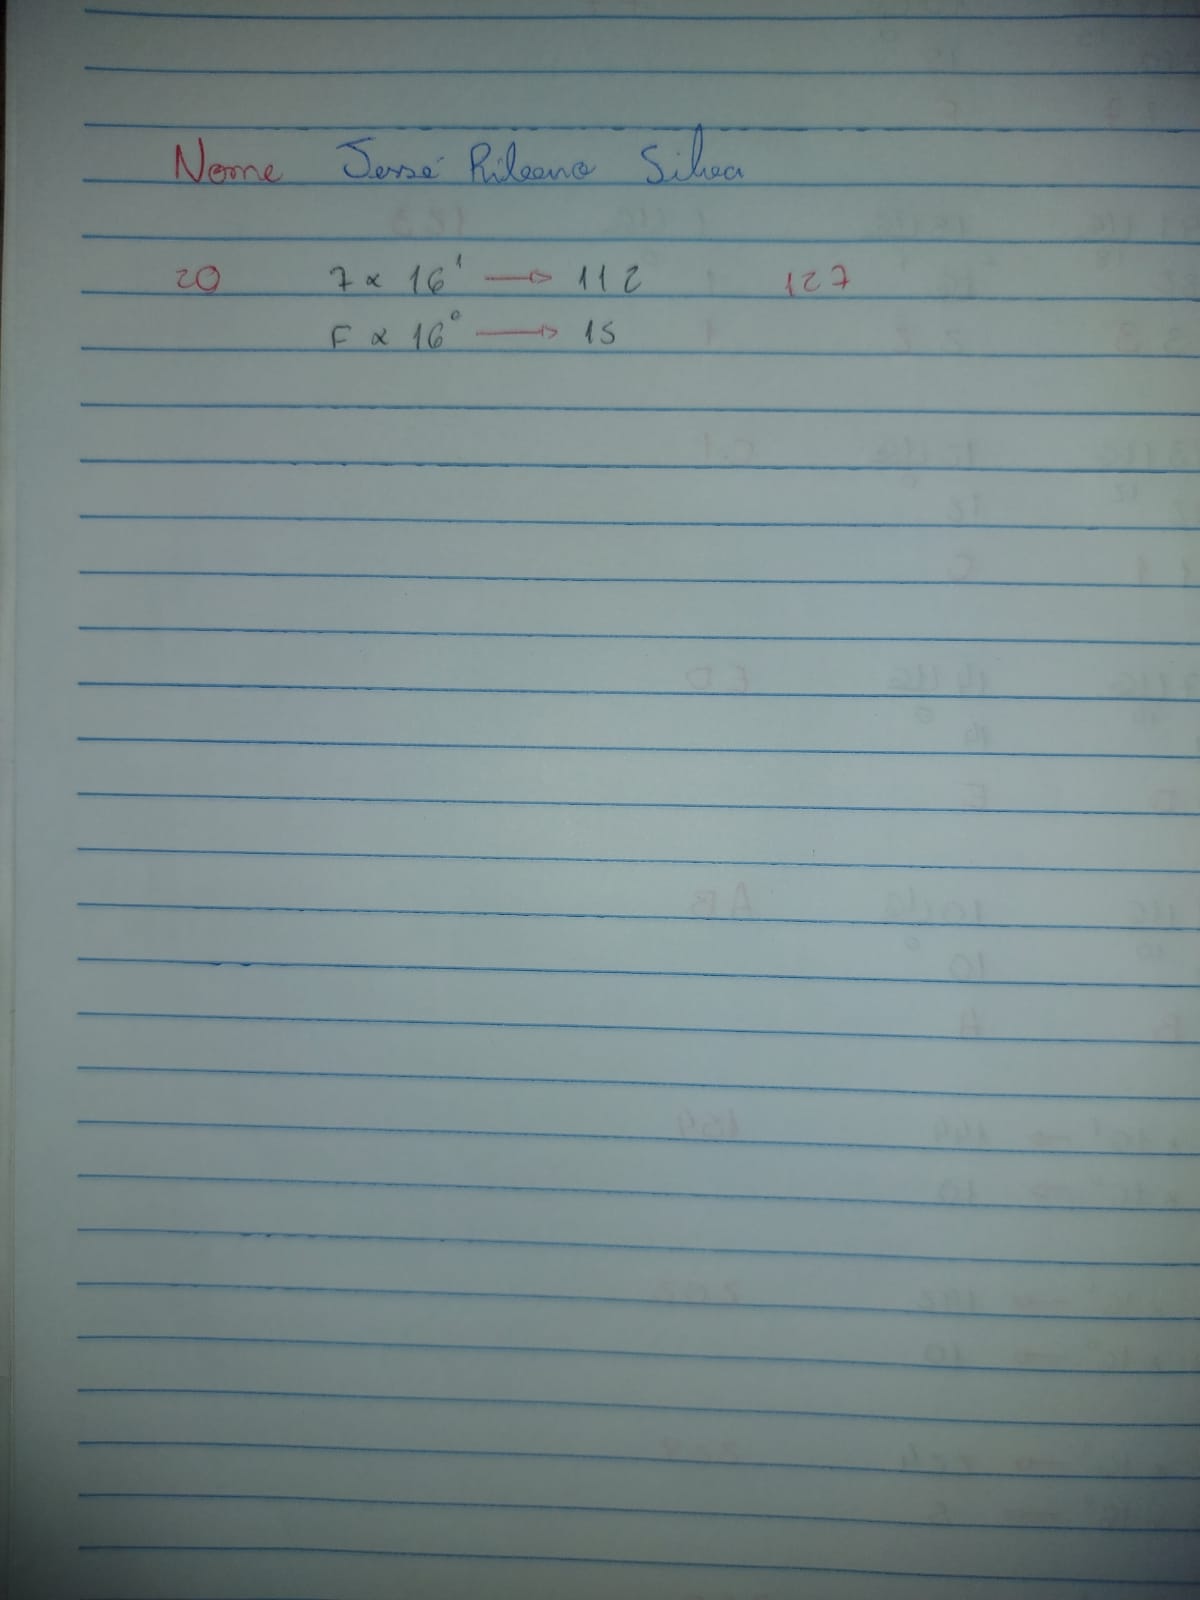 Nome Jessé Rileano Silva
20 7 x 16¹ → 112 127
F x 16⁰ → 15